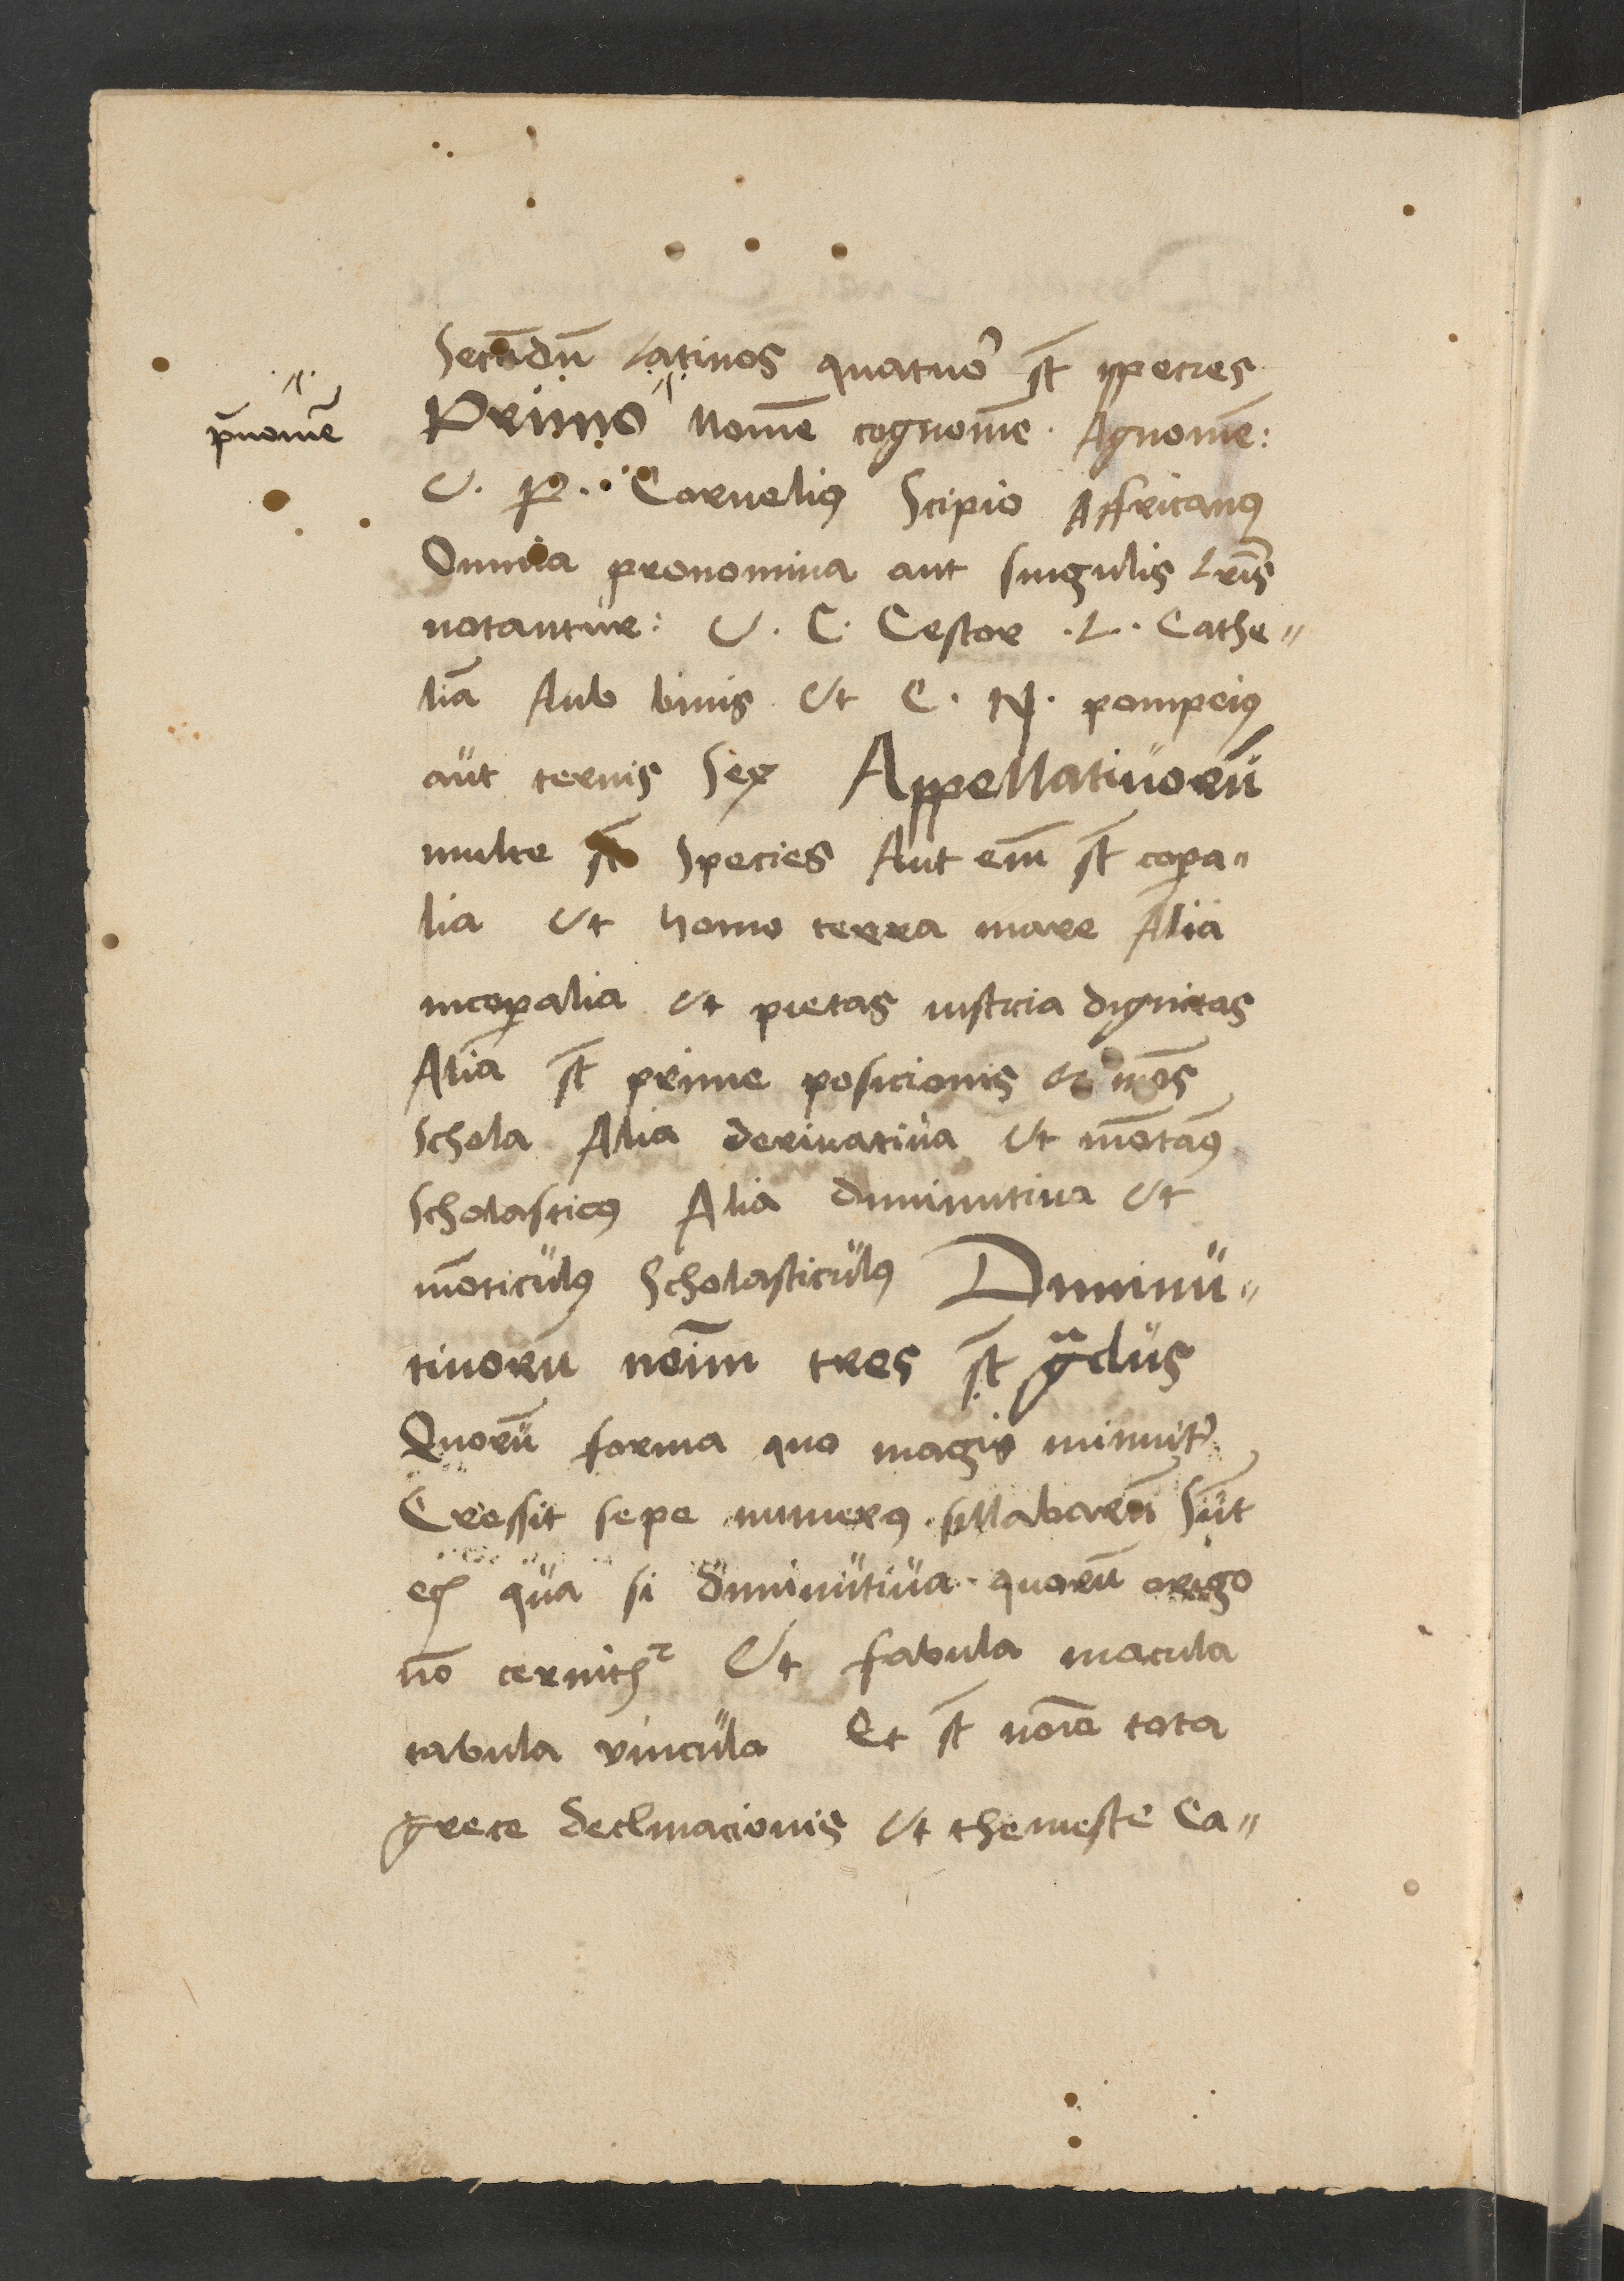 Secūdū Latinos quatuor st species
p̄nomē
Primo Nomē cognomē. Agnomē:
V. P. Cornelius Scipio Affricanus
Omnia pronomina aut singulis lris
notantur: V. C. Cestor .L. Cathe„
lia Aub binis Ut C. N. pompeius
aut ternis Sex Appellatiuorū
multe st Species Aut em̄ st copa„
lia Ut homo terra mare Alia
incopalia Ut pietas iusticia dignitas
Alia st prime posicionis ut mōs
Schola Alia deriuatiua Ut mōtāus
Scholasticus Alia diminutiua Ut
mōticulus Scholasticulus Diminu„
tiuorū noīm tres st gͣdus
Quorū forma quo magis minuit᷑
Cressit sepe numerus sillabarū Sūt
eꝗ qua si diminutiua quorū origo
nō cernitur Ut fabula macula
tabula vincula Et st nomē tota
grece declinacionis Ut themeste Ca„